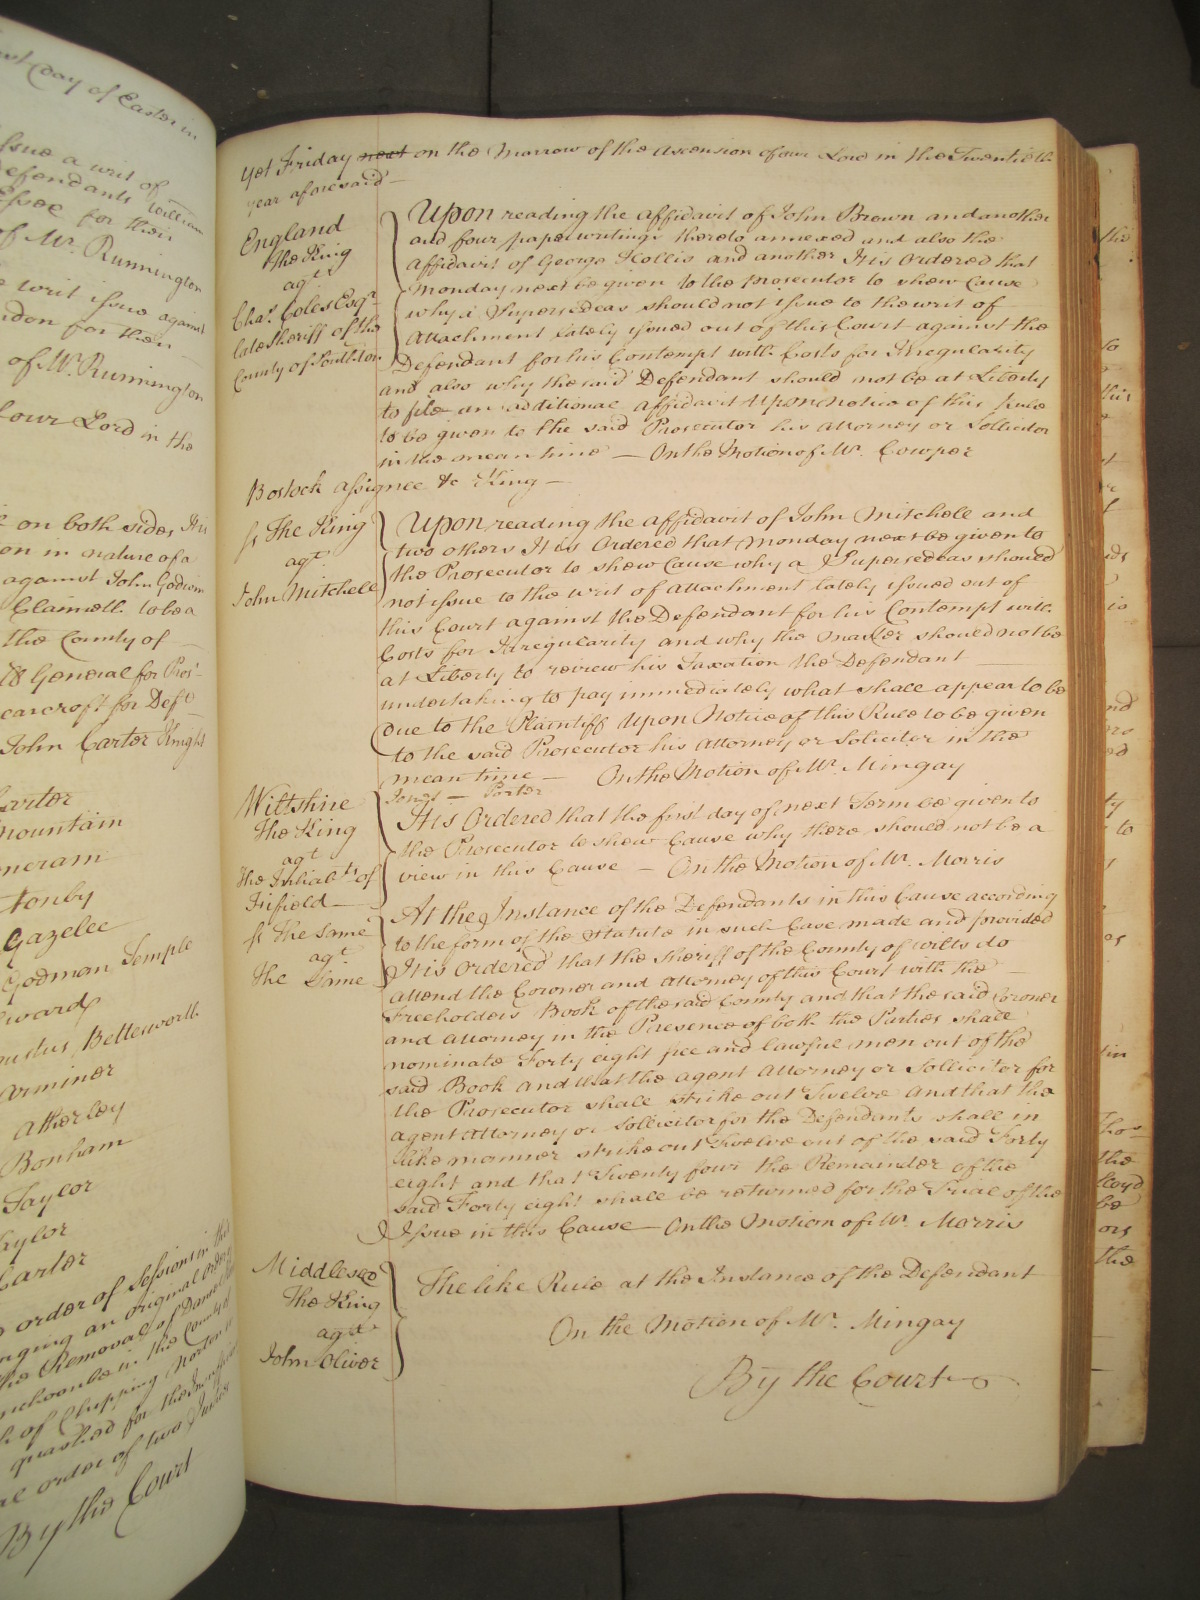 Yet Friday next on the Morrow of the Ascension of our Lord in the Twentieth
year aforesaid
England
The King
agt
Chas. Coles Esqr.
late Sheriff of the
County of Southton
Upon reading the Affidavit of John Brown and another
and four paper writings thereto annexed and also the
Affidavit of George Hollis and another It is Ordered that
Monday next be given to the Prosecutor to shew Cause
why a Supersedeas should not issue to the writ of
Attachment lately issued out of this Court against the
Defendant for his Contempt with Costs for Irregularity
and also why the said Defendant should not be at Liberty
to file an additional affidavit Upon Notice of this Rule
to be given to the said Prosecutor his Attorney or Sollicitor
in the mean time — On the Motion of Mr. Cowper
Bostock assignee &c King —
The King
agt.
John Mitchell
Upon reading the Affidavit of John Mitchell and
two others It is Ordered that Monday next be given to
the Prosecutor to shew Cause why a Supersedeas should
not issue to the writ of Attachment lately issued out of
this Court against the Defendant for his Contempt with
Costs for Irregularity and why the Master should not be
at Liberty to review his Taxation the Defendant
undertaking to pay immediately what shall appear to be
due to the Plaintiff Upon Notice of this Rule to be given
to the said Prosecutor his Attorney or Solicitor in the
mean time — On the Motion of Mr. Mingay
Jones — Porter
Wiltshire
The King
agt
The Inhabts. of
Fifield
It is Ordered that the first day of next Term be given to
the Prosecutor to shew Cause why there should not be a
view in this Cause — On the Motion of Mr. Morris
The Same
agt
The Same
At the Instance of the Defendants in this Cause according
to the form of the Statute in such Case made and provided
It is Ordered that the Sheriff of the County of Wilts do
attend the Coroner and Attorney of this Court with the
Freeholders Book of the said County and that the said Coroner
and Attorney in the Presence of both the Parties shall
nominate Forty eight free and lawful men out of the
said Book and that the Agent Attorney or Sollicitor for
the Prosecutor shall strike out Twelve and that the
Agent Attorney or Sollicitor for the Defendants shall in
like manner strike out Twelve out of the said Forty
eight and that Twenty four the Remainder of the
said Forty eight shall be returned for the Trial of the
Issue in this Cause — On the Motion of Mr. Morris
Middlesex
The King
agt
John Oliver
The like Rule at the Instance of the Defendant
On the Motion of Mr. Mingay
By the Court
day of Easter in
Issue a writ of
Defendants William
for their
of Mr. Runnington
writ issue against
for their
of Mr. Runnington
of our Lord in the
on both sides It is
on in nature of a
against John Godwin
to be a
the County of
General for Pros
for Deft
John Carter Knight
Carter
mountain
Tonby
Gazelee
Godman Temple
Bettesworth
Atherley
Bonham
Taylor
Taylor
Carter
order of Sessions in this
an original Order
the Removal of Daniel
in the County of
of Chipping Norton
quashed for the
order of two
By the Court